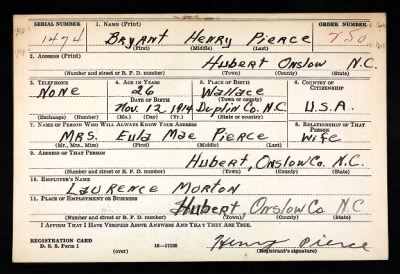 SERIAL NUMBER 1. NAME (Print) ORDER NUMBER
1474 BRYANT HENRY PIERCE 750
(First) (Middle) (Last)
2. ADDRESS (Print)
Hubert Onslow N.C.
(Number and street or R. F. D. number) (Town) (County) (State)
3. TELEPHONE 4. AGE IN YEARS 5. PLACE OF BIRTH 6. COUNTRY OF CITIZENSHIP
None 26 Wallace
DATE OF BIRTH (Town or county)
Nov. 12, 1914 Duplin Co. N.C. U.S.A.
(Exchange) (Number) (Mo.) (Day) (Yr.) (State or country)
7. NAME OF PERSON WHO WILL ALWAYS KNOW YOUR ADDRESS 8. RELATIONSHIP OF THAT PERSON
MRS. Eula Mae Pierce Wife
(Mr., Mrs., Miss) (First) (Middle) (Last)
9. ADDRESS OF THAT PERSON
Hubert, Onslow Co. N.C.
(Number and street or R. F. D. number) (Town) (County) (State)
10. EMPLOYER'S NAME
Laurence Morton
11. PLACE OF EMPLOYMENT OR BUSINESS
Hubert Onslow Co. N.C
(Number and street or R. F. D. number) (Town) (County) (State)
I AFFIRM THAT I HAVE VERIFIED ABOVE ANSWERS AND THAT THEY ARE TRUE.
REGISTRATION CARD
D. S. S. Form 1 (over) 16—17105 Henry Pierce
(Registrant's signature)